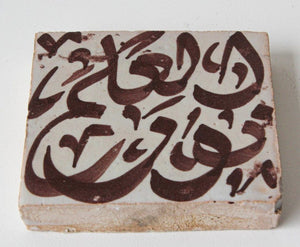 العلم
نور